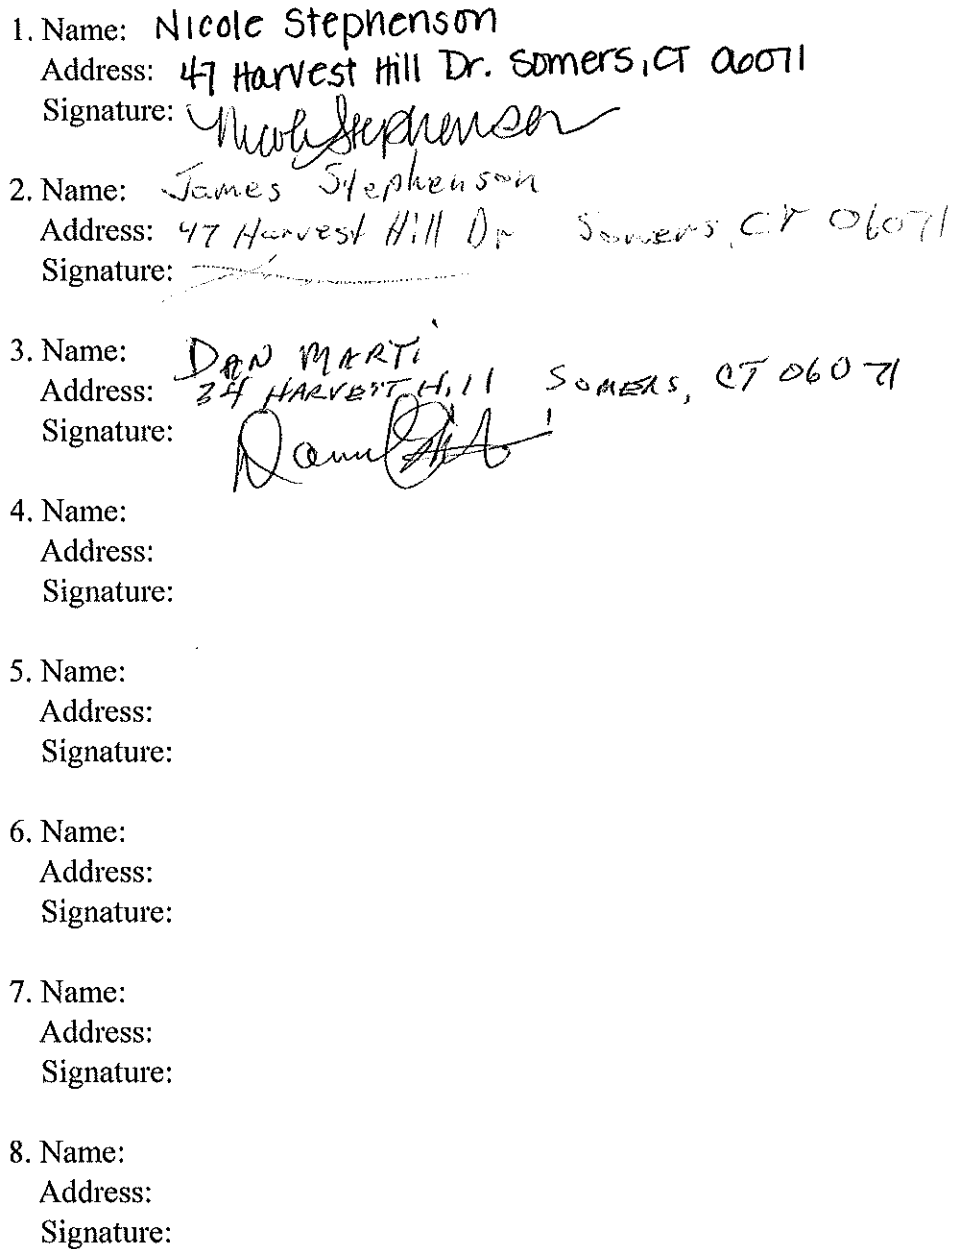 1. Name: Nicole Stephenson
Address: 47 Harvest Hill Dr. Somers, CT 06071
Signature: Nicole Stephenson
2. Name: James Stephenson
Address: 47 Harvest Hill Dr Somers, CT 06071
Signature:
3. Name: DAN MARTi
Address: 34 HARVEST Hill SOMERS, CT 06071
Signature:
4. Name:
Address:
Signature:
5. Name:
Address:
Signature:
6. Name:
Address:
Signature:
7. Name:
Address:
Signature:
8. Name:
Address:
Signature: